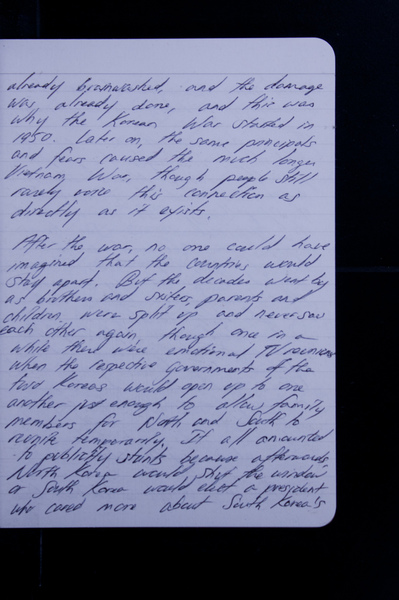 already brainwashed, and the damage
was already done, and this was
why the Korean War started in
1950. Later on, the same principals
and fears caused the much longer
Vietnam War, though people still
rarely make this connection as
directly as it exists.
After the war, no one could have
imagined that the countries would
stay apart. But the decades went by
as brothers and sisters, parents and
children, were split up and never saw
each other again, though once in a
while there were emotional TV reunions
when the respective governments of the
two Koreas would open up to one
another just enough to allow family
members for North and South to
reunite temporarily. It all amounted
to publicity stunts because afterwards
North Korea would shut the window
or South Korea would elect a president
who cared more about South Korea's